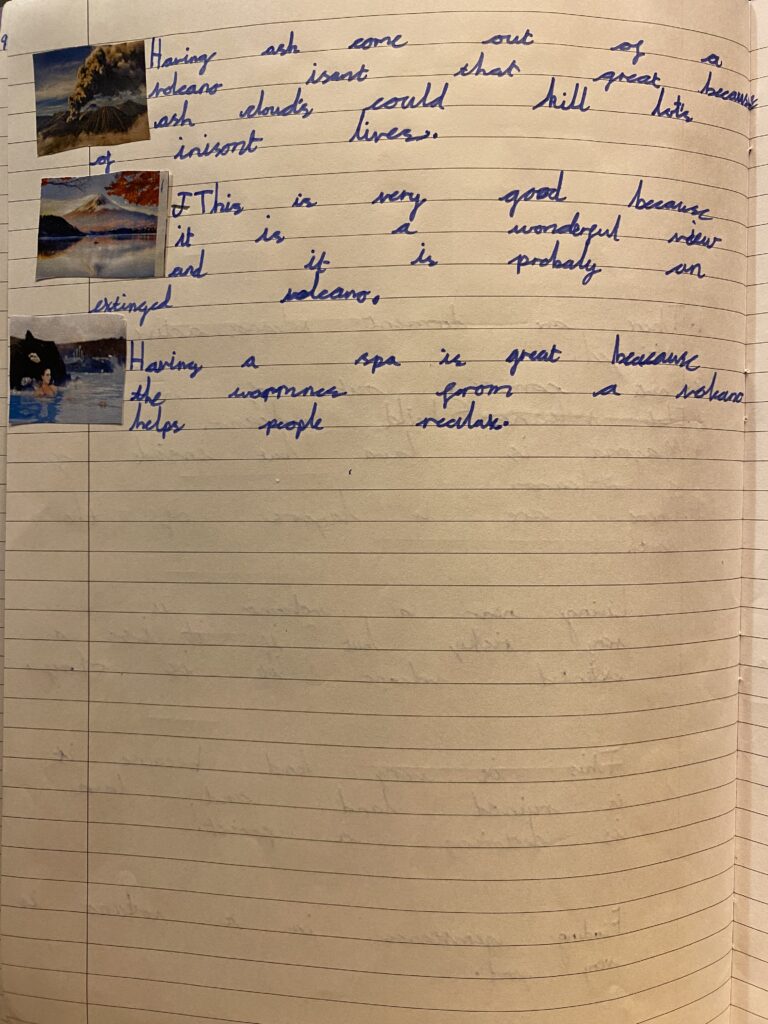 9
Having ash come out of a
volcano isent that great because
ash clouds could kill lots
of inisont lives.
This is very good because
it is a wonderful view
and it is probaly an
extinged volcano.
Having a spa is great beacause
the warmnes from a volcano
helps people realax.